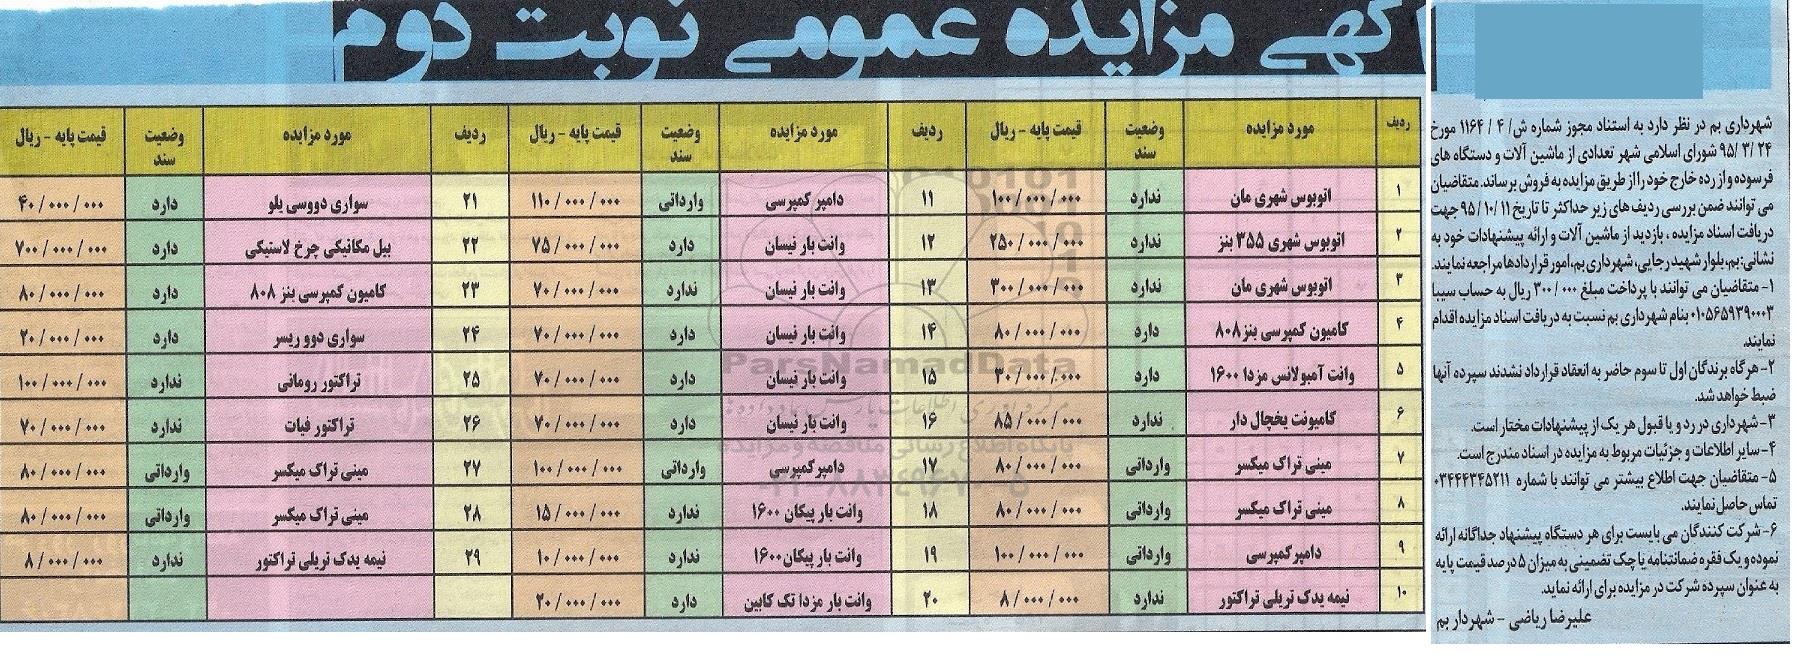 آگهی مزایده عمومی نوبت دوم
شهرداری بم در نظر دارد به استناد مجوز شماره ش/ ۴ / ۱۱۶۴ مورخ
۹۵/ ۳/ ۲۴ شورای اسلامی شهر تعدادی از ماشین آلات و دستگاه های
فرسوده و از رده خارج خود را از طریق مزایده به فروش برساند. متقاضیان
می توانند ضمن بررسی ردیف های زیر حداکثر تا تاریخ ۹۵/۱۰/۱۱ جهت
دریافت اسناد مزایده ، بازدید از ماشین آلات و ارائه پیشنهادات خود به
نشانی: بم، بلوار شهید رجایی، شهرداری بم، امور قراردادها مراجعه نمایند.
۱- متقاضیان می توانند با پرداخت مبلغ ۳۰۰/۰۰۰ ریال به حساب سیبا
۰۱۰۵۶۵۹۳۹۰۰۰۳ بنام شهرداری بم نسبت به دریافت اسناد مزایده اقدام
نمایند.
۲- هرگاه برندگان اول تا سوم حاضر به انعقاد قرارداد نشدند سپرده آنها
ضبط خواهد شد.
۳- شهرداری در رد و یا قبول هر یک از پیشنهادات مختار است.
۴- سایر اطلاعات و جزئیات مربوط به مزایده در اسناد مندرج است.
۵- متقاضیان جهت اطلاع بیشتر می توانند با شماره ۰۳۴۴۴۳۴۵۲۱۱
تماس حاصل نمایند.
۶- شرکت کنندگان می بایست برای هر دستگاه پیشنهاد جداگانه ارائه
نموده و یک فقره ضمانتنامه یا چک تضمینی به میزان ۵ درصد قیمت پایه
به عنوان سپرده شرکت در مزایده برای ارائه نماید.
علیرضا ریاضی - شهردار بم
ردیف مورد مزایده وضعیت سند قیمت پایه - ریال ردیف مورد مزایده وضعیت سند قیمت پایه - ریال ردیف مورد مزایده وضعیت سند قیمت پایه - ریال
۱ اتوبوس شهری مان ندارد ۱۰۰/۰۰۰/۰۰۰ ۱۱ دامپر کمپرسی وارداتی ۱۱۰/۰۰۰/۰۰۰ ۲۱ سواری دووسی یلو دارد ۴۰/۰۰۰/۰۰۰
۲ اتوبوس شهری ۳۵۵ بنز ندارد ۲۵۰/۰۰۰/۰۰۰ ۱۲ وانت بار نیسان دارد ۷۵/۰۰۰/۰۰۰ ۲۲ بیل مکانیکی چرخ لاستیکی دارد ۷۰۰/۰۰۰/۰۰۰
۳ اتوبوس شهری مان ندارد ۳۰۰/۰۰۰/۰۰۰ ۱۳ وانت بار نیسان ندارد ۷۰/۰۰۰/۰۰۰ ۲۳ کامیون کمپرسی بنز ۸۰۸ دارد ۸۰/۰۰۰/۰۰۰
۴ کامیون کمپرسی بنز ۸۰۸ دارد ۸۰/۰۰۰/۰۰۰ ۱۴ وانت بار نیسان دارد ۷۰/۰۰۰/۰۰۰ ۲۴ سواری دوو ریسر دارد ۲۰/۰۰۰/۰۰۰
۵ وانت آمبولانس مزدا ۱۶۰۰ دارد ۳۰/۰۰۰/۰۰۰ ۱۵ وانت بار نیسان دارد ۷۰/۰۰۰/۰۰۰ ۲۵ تراکتور رومانی ندارد ۱۰۰/۰۰۰/۰۰۰
۶ کامیونت یخچال دار ندارد ۸۵/۰۰۰/۰۰۰ ۱۶ وانت بار نیسان دارد ۷۰/۰۰۰/۰۰۰ ۲۶ تراکتور فیات ندارد ۷۰/۰۰۰/۰۰۰
۷ مینی تراک میکسر وارداتی ۸۰/۰۰۰/۰۰۰ ۱۷ دامپر کمپرسی وارداتی ۱۰۰/۰۰۰/۰۰۰ ۲۷ مینی تراک میکسر وارداتی ۸۰/۰۰۰/۰۰۰
۸ مینی تراک میکسر وارداتی ۸۰/۰۰۰/۰۰۰ ۱۸ وانت بار پیکان ۱۶۰۰ ندارد ۱۵/۰۰۰/۰۰۰ ۲۸ مینی تراک میکسر وارداتی ۸۰/۰۰۰/۰۰۰
۹ دامپر کمپرسی وارداتی ۱۰۰/۰۰۰/۰۰۰ ۱۹ وانت بار پیکان ۱۶۰۰ ندارد ۱۰/۰۰۰/۰۰۰ ۲۹ نیمه یدک تریلی تراکتور ندارد ۸/۰۰۰/۰۰۰
۱۰ نیمه یدک تریلی تراکتور ندارد ۸/۰۰۰/۰۰۰ ۲۰ وانت بار مزدا تک کابین دارد ۲۰/۰۰۰/۰۰۰
ParsNamadData
پایگاه اطلاع رسانی مناقصه و مزایده